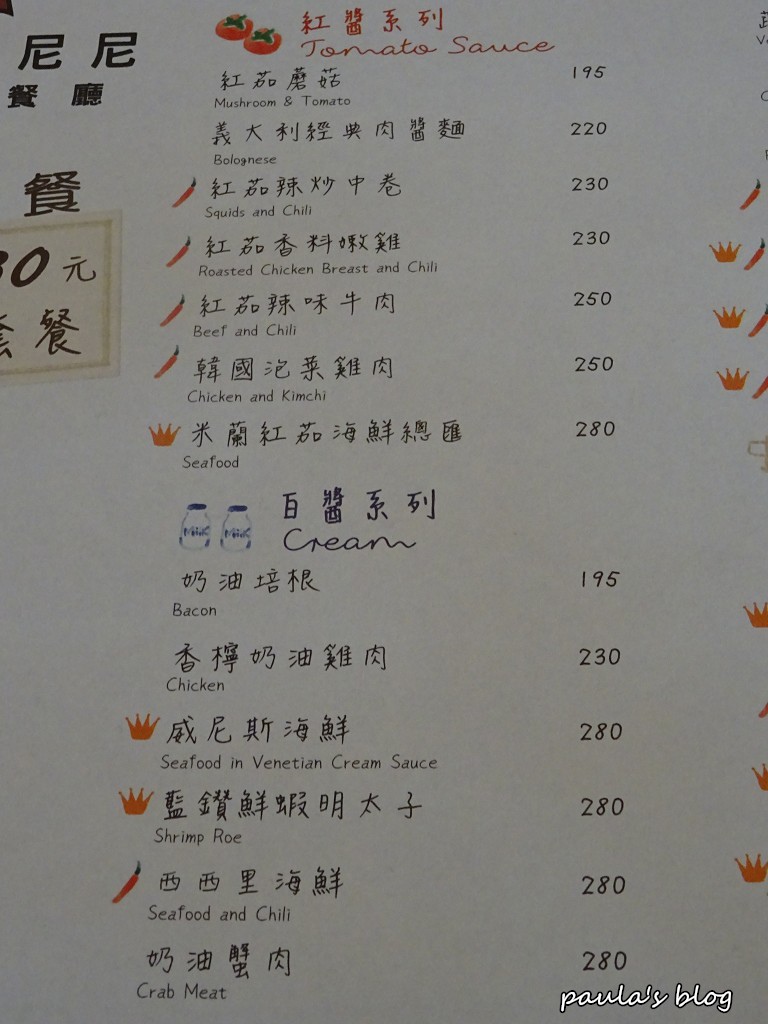 尼尼
餐廳
餐
30元
套餐
紅醬系列
Tomato Sauce
紅茄蘑菇 195
Mushroom & Tomato
義大利經典肉醬麵 220
Bolognese
紅茄辣炒中卷 230
Squids and Chili
紅茄香料嫩雞 230
Roasted Chicken Breast and Chili
紅茄辣味牛肉 250
Beef and Chili
韓國泡菜雞肉 250
Chicken and Kimchi
米蘭紅茄海鮮總匯 280
Seafood
白醬系列
Cream
奶油培根 195
Bacon
香檸奶油雞肉 230
Chicken
威尼斯海鮮 280
Seafood in Venetian Cream Sauce
藍鑽鮮蝦明太子 280
Shrimp Roe
西西里海鮮 280
Seafood and Chili
奶油蟹肉 280
Crab Meat
paula's blog